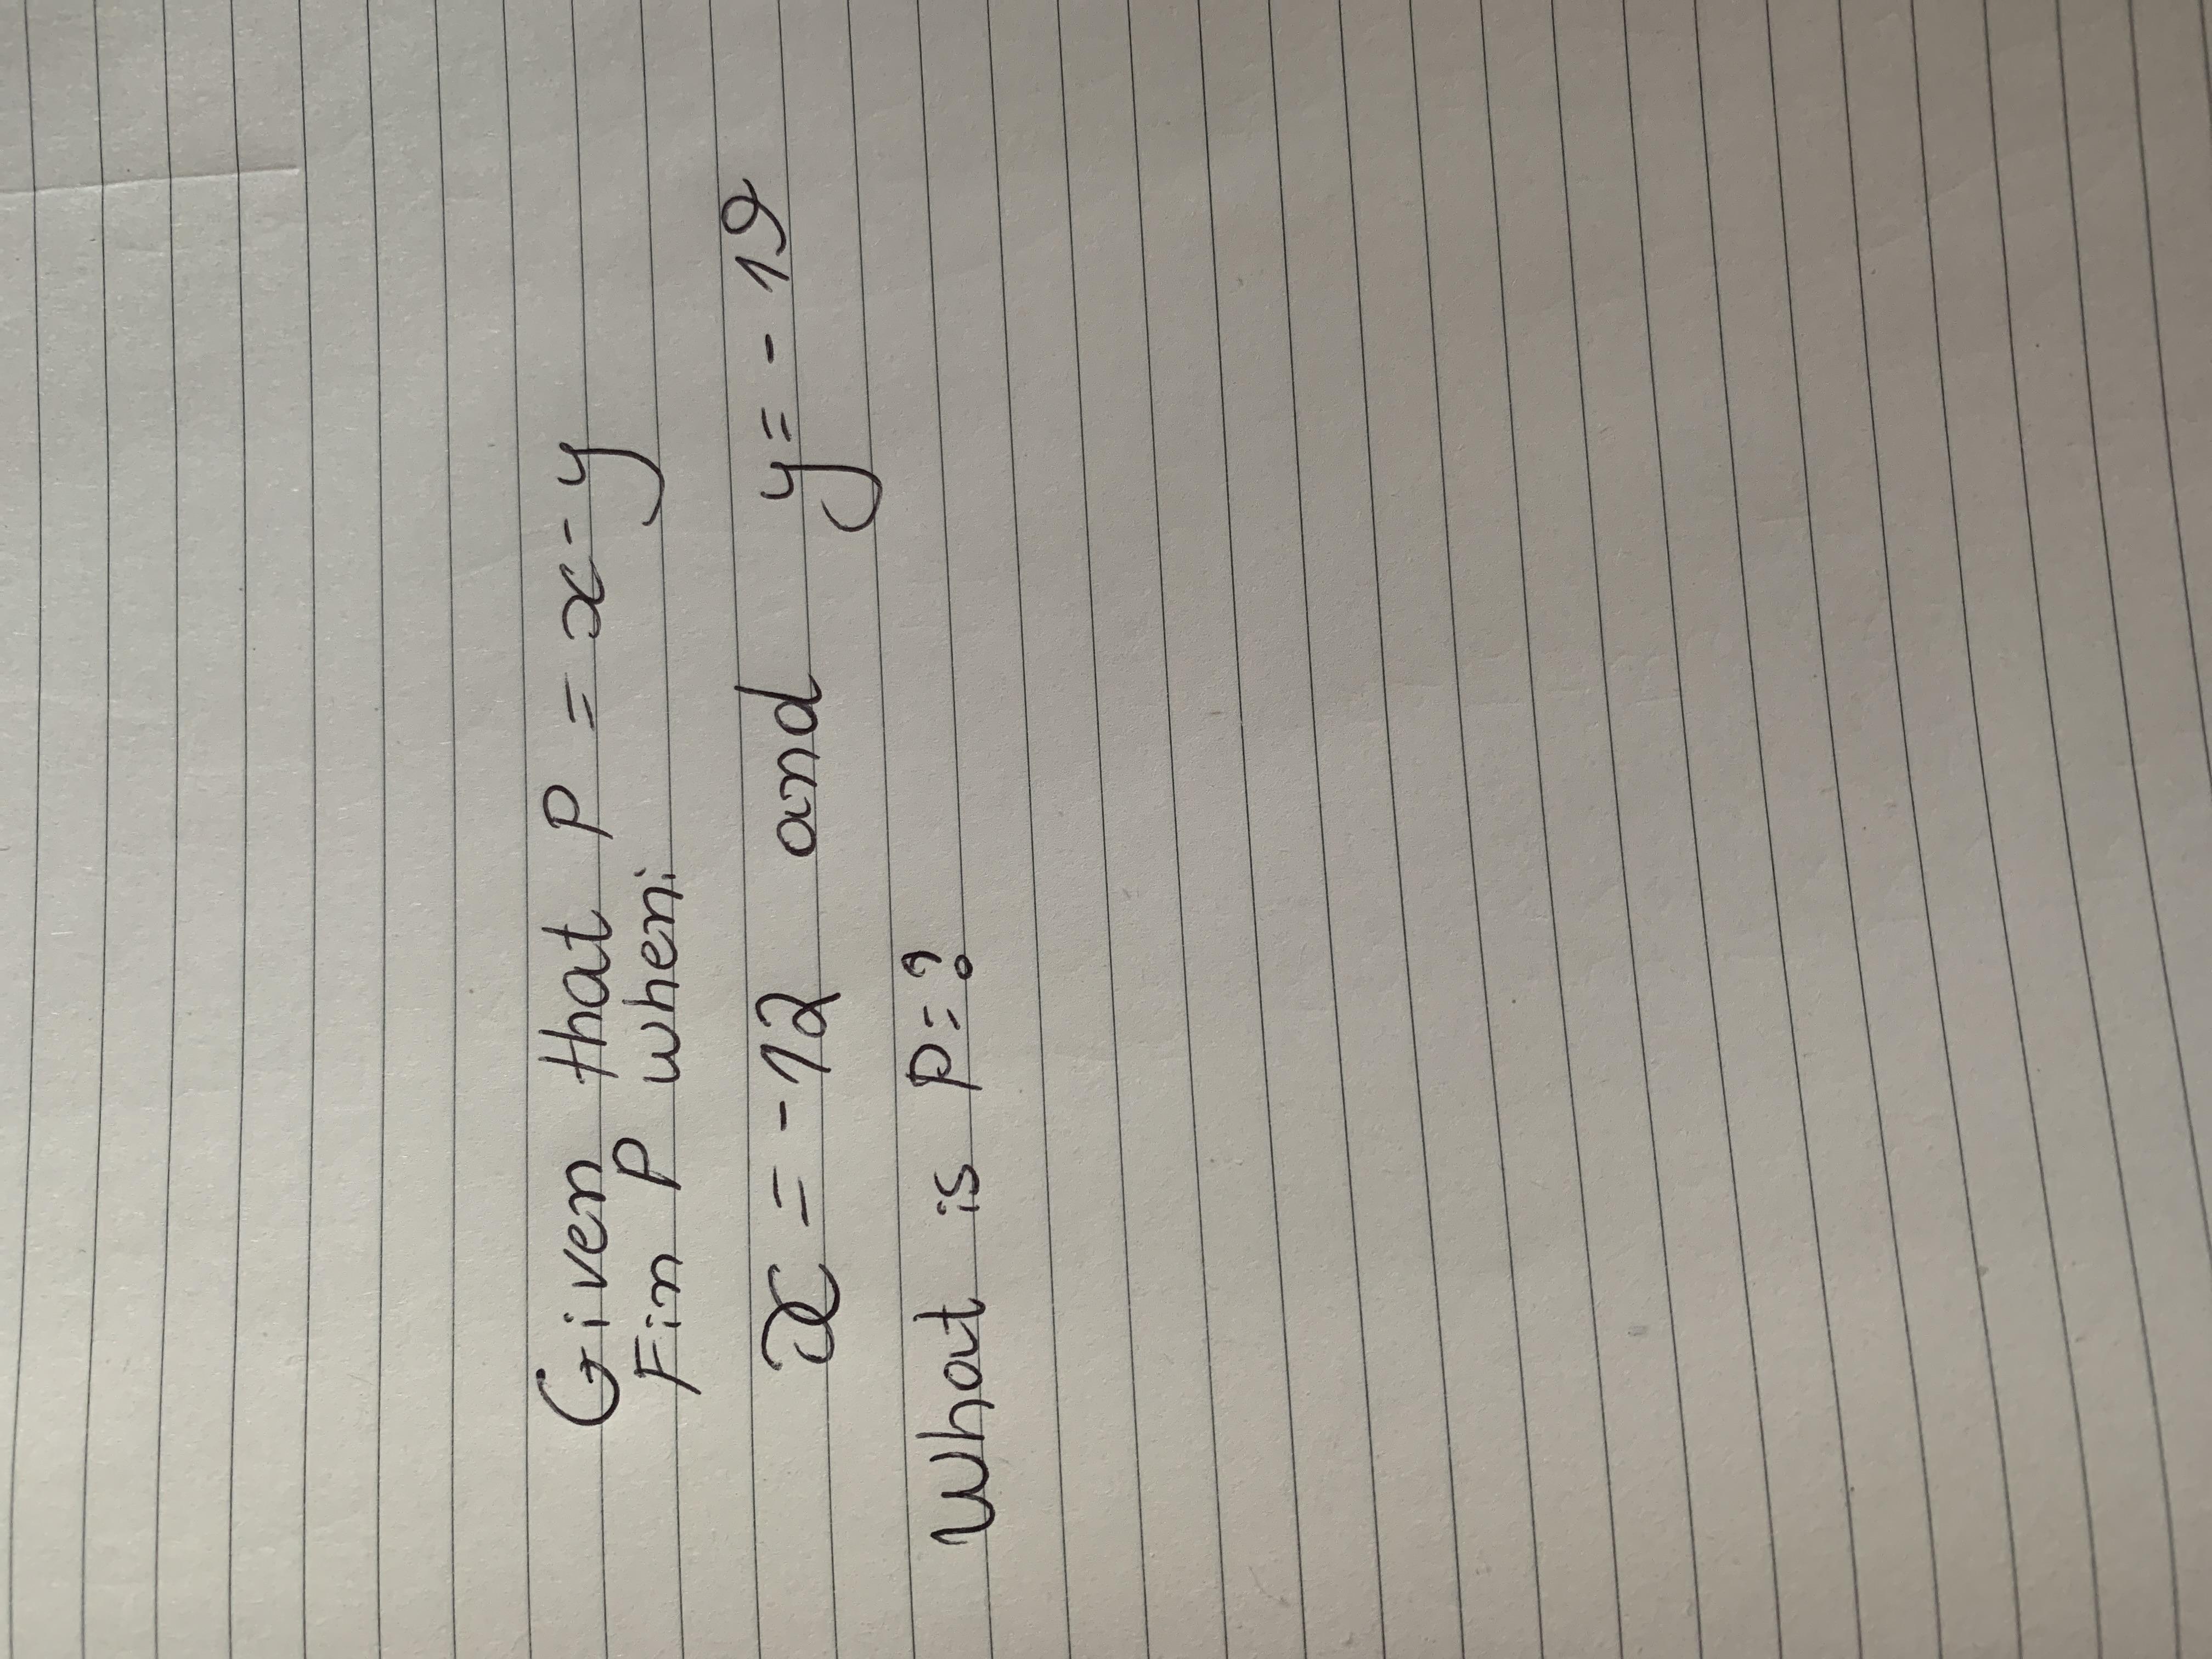 Given that P = x - y
Fin P when:
x = - 12 and y = - 19
What is P = ?